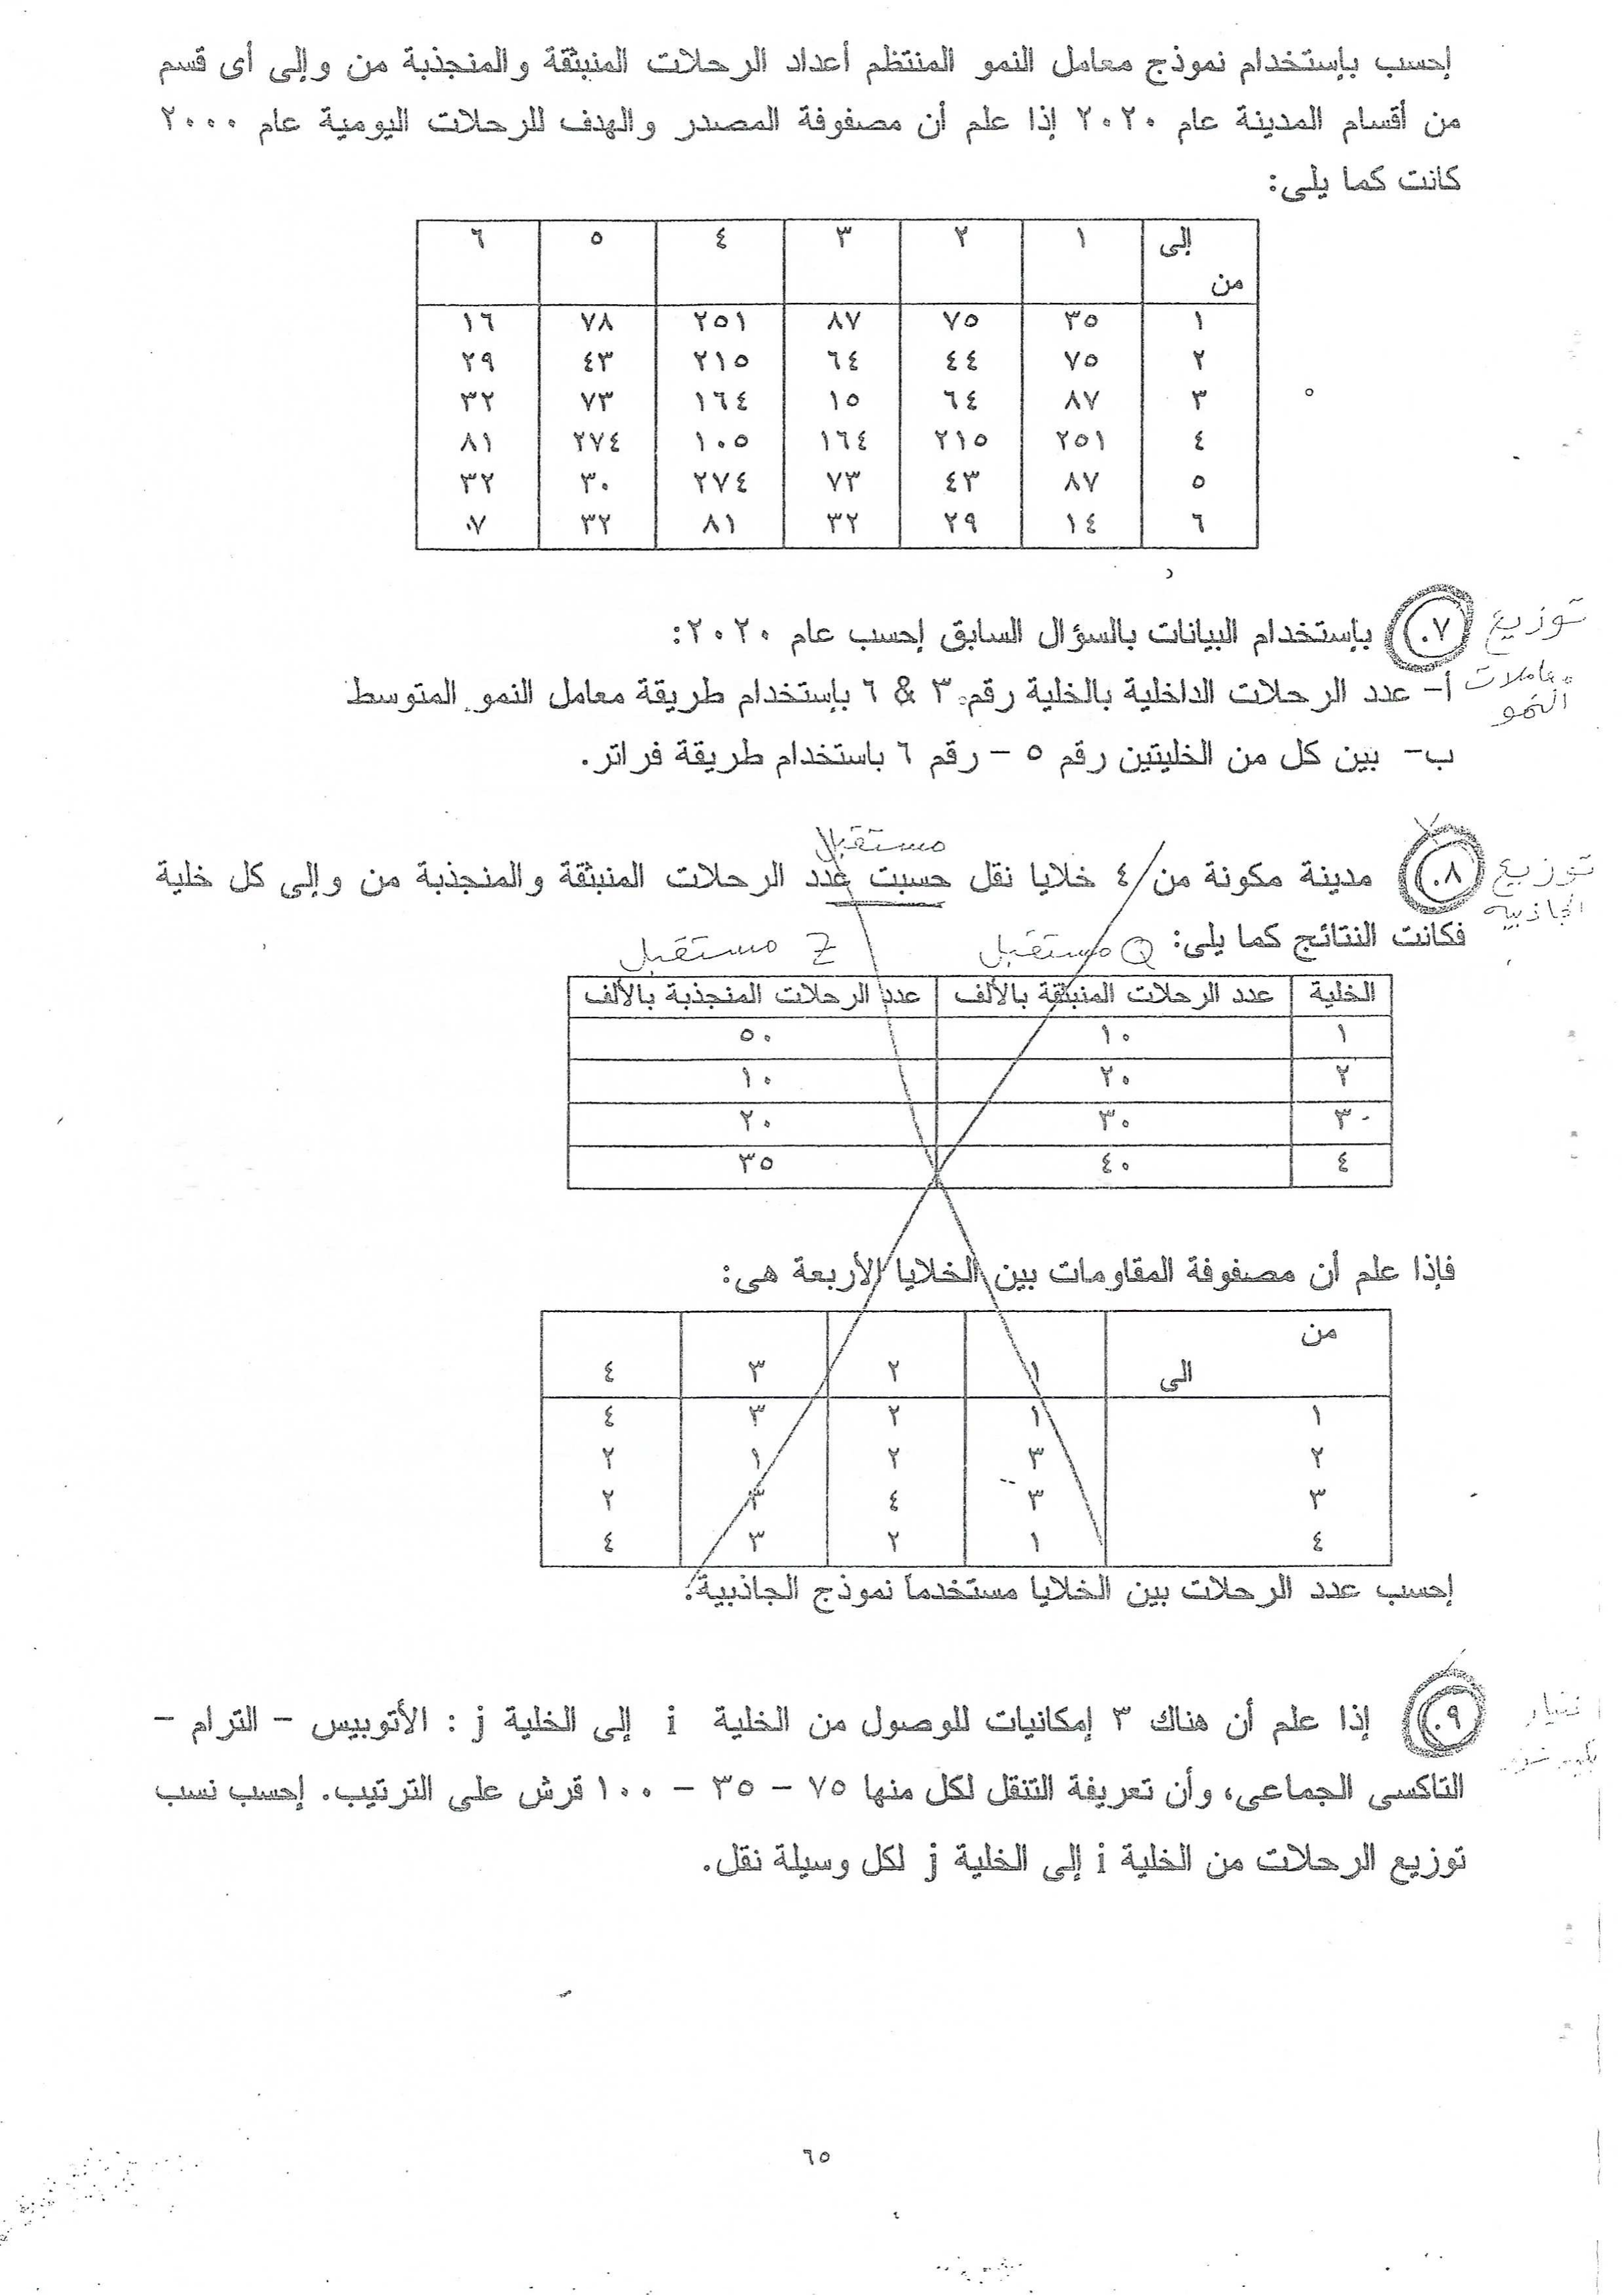 إحسب بإستخدام نموذج معامل النمو المنتظم أعداد الرحلات المنبثقة والمنجذبة من وإلى أى قسم
من أقسام المدينة عام ٢٠٢٠ إذا علم أن مصفوفة المصدر والهدف للرحلات اليومية عام ٢٠٠٠
كانت كما يلى:
إلى ١ ٢ ٣ ٤ ٥ ٦
من
١ ٣٥ ٧٥ ٨٧ ٢٥١ ٧٨ ١٦
٢ ٧٥ ٤٤ ٦٤ ٢١٥ ٤٣ ٢٩
٣ ٨٧ ٦٤ ١٥ ١٦٤ ٧٣ ٣٢
٤ ٢٥١ ٢١٥ ١٦٤ ١٠٥ ٢٧٤ ٨١
٥ ٨٧ ٤٣ ٧٣ ٢٧٤ ٣٠ ٣٢
٦ ١٤ ٢٩ ٣٢ ٨١ ٣٢ ٠٧
توزيع
معاملات
النمو
٧. بإستخدام البيانات بالسؤال السابق إحسب عام ٢٠٢٠:
أ- عدد الرحلات الداخلية بالخلية رقم ٣ & ٦ بإستخدام طريقة معامل النمو المتوسط
ب- بين كل من الخليتين رقم ٥ – رقم ٦ باستخدام طريقة فراتر.
مستقبل
توزيع
الجاذبيه
٨. مدينة مكونة من ٤ خلايا نقل حسبت عدد الرحلات المنبثقة والمنجذبة من وإلى كل خلية
فكانت النتائج كما يلى:
Q مستقبل Z مستقبل
الخلية عدد الرحلات المنبثقة بالألف عدد الرحلات المنجذبة بالألف
١ ١٠ ٥٠
٢ ٢٠ ١٠
٣ ٣٠ ٢٠
٤ ٤٠ ٣٥
فإذا علم أن مصفوفة المقاومات بين الخلايا الأربعة هى:
من
الى ١ ٢ ٣ ٤
١ ١ ٢ ٣ ٤
٢ ٣ ٢ ١ ٢
٣ ٣ ٤ ٣ ٢
٤ ١ ٢ ٣ ٤
إحسب عدد الرحلات بين الخلايا مستخدماً نموذج الجاذبية.
٩. إذا علم أن هناك ٣ إمكانيات للوصول من الخلية i إلى الخلية j : الأتوبيس – الترام –
التاكسى الجماعى، وأن تعريفة التنقل لكل منها ٧٥ – ٣٥ – ١٠٠ قرش على الترتيب. إحسب نسب
توزيع الرحلات من الخلية i إلى الخلية j لكل وسيلة نقل.
٦٥